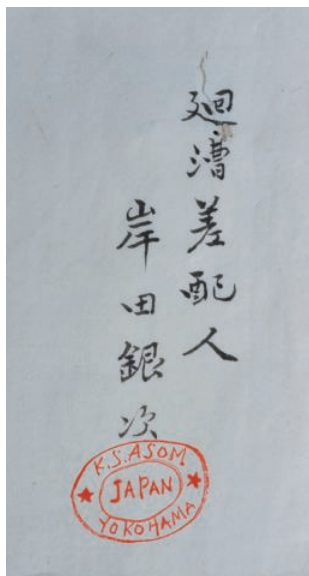 廻漕差配人
岸田銀次
K.S.ASOM
JAPAN
YOKOHAMA